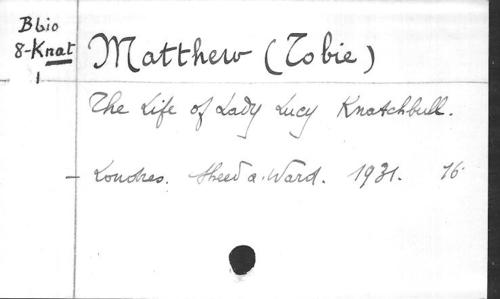 Bbio
8-Knat
1
Matthew (Tobie)
The Life of Lady Lucy Knatchbull.
- Londres. Sheed a. Ward. 1931. 16